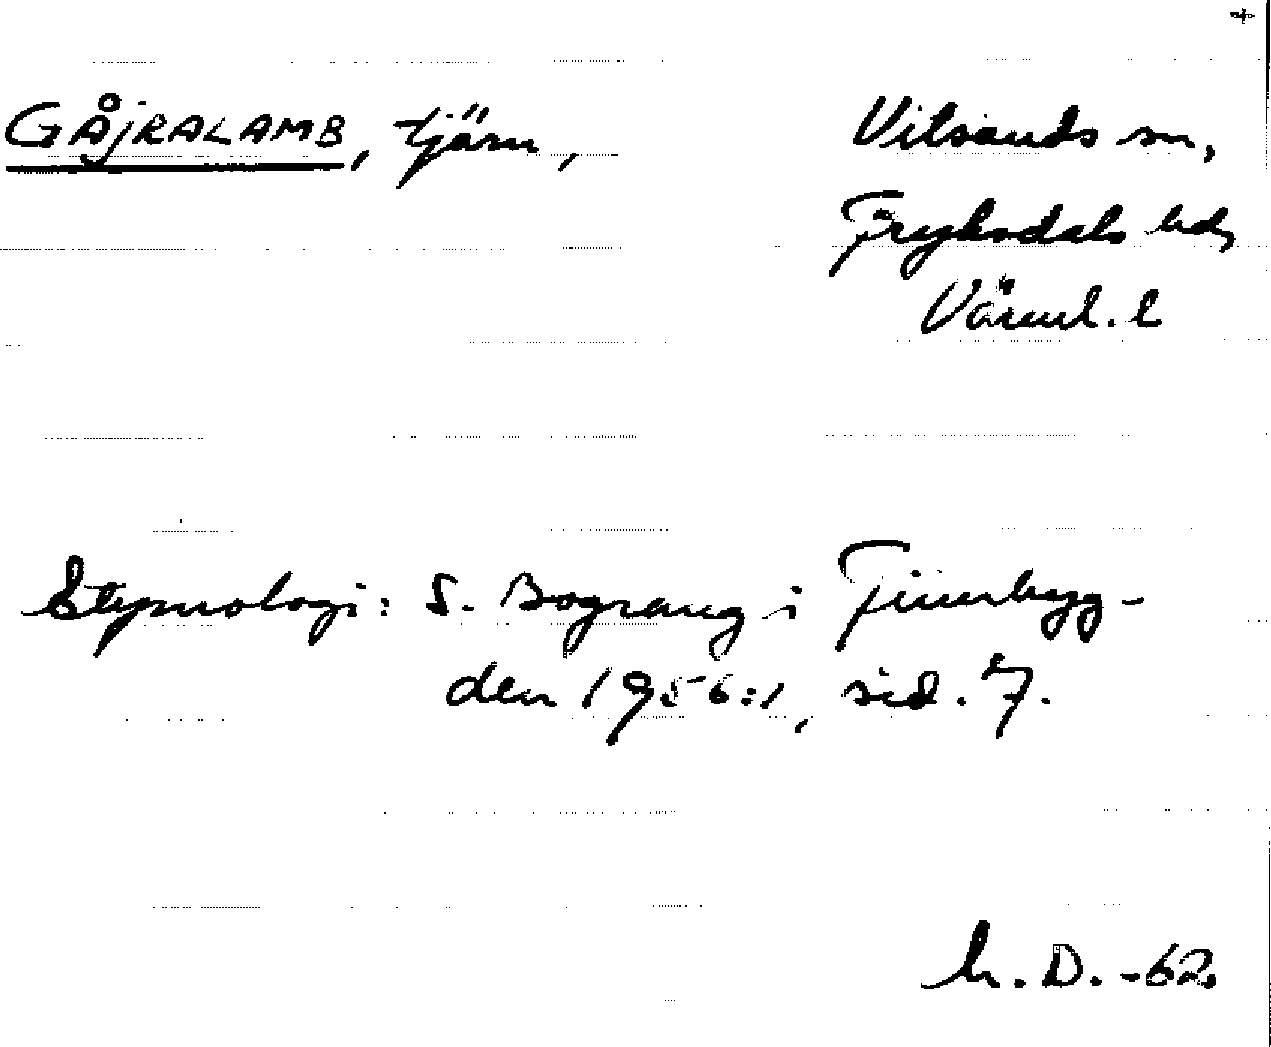 GÅJRALAMB, tjärn, Vitsands sn,
Fryksdals hd,
Värml. l
Etymologi: S. Bograng i Finnbygg-
den 1956:1, sid. 7.
D. -62.